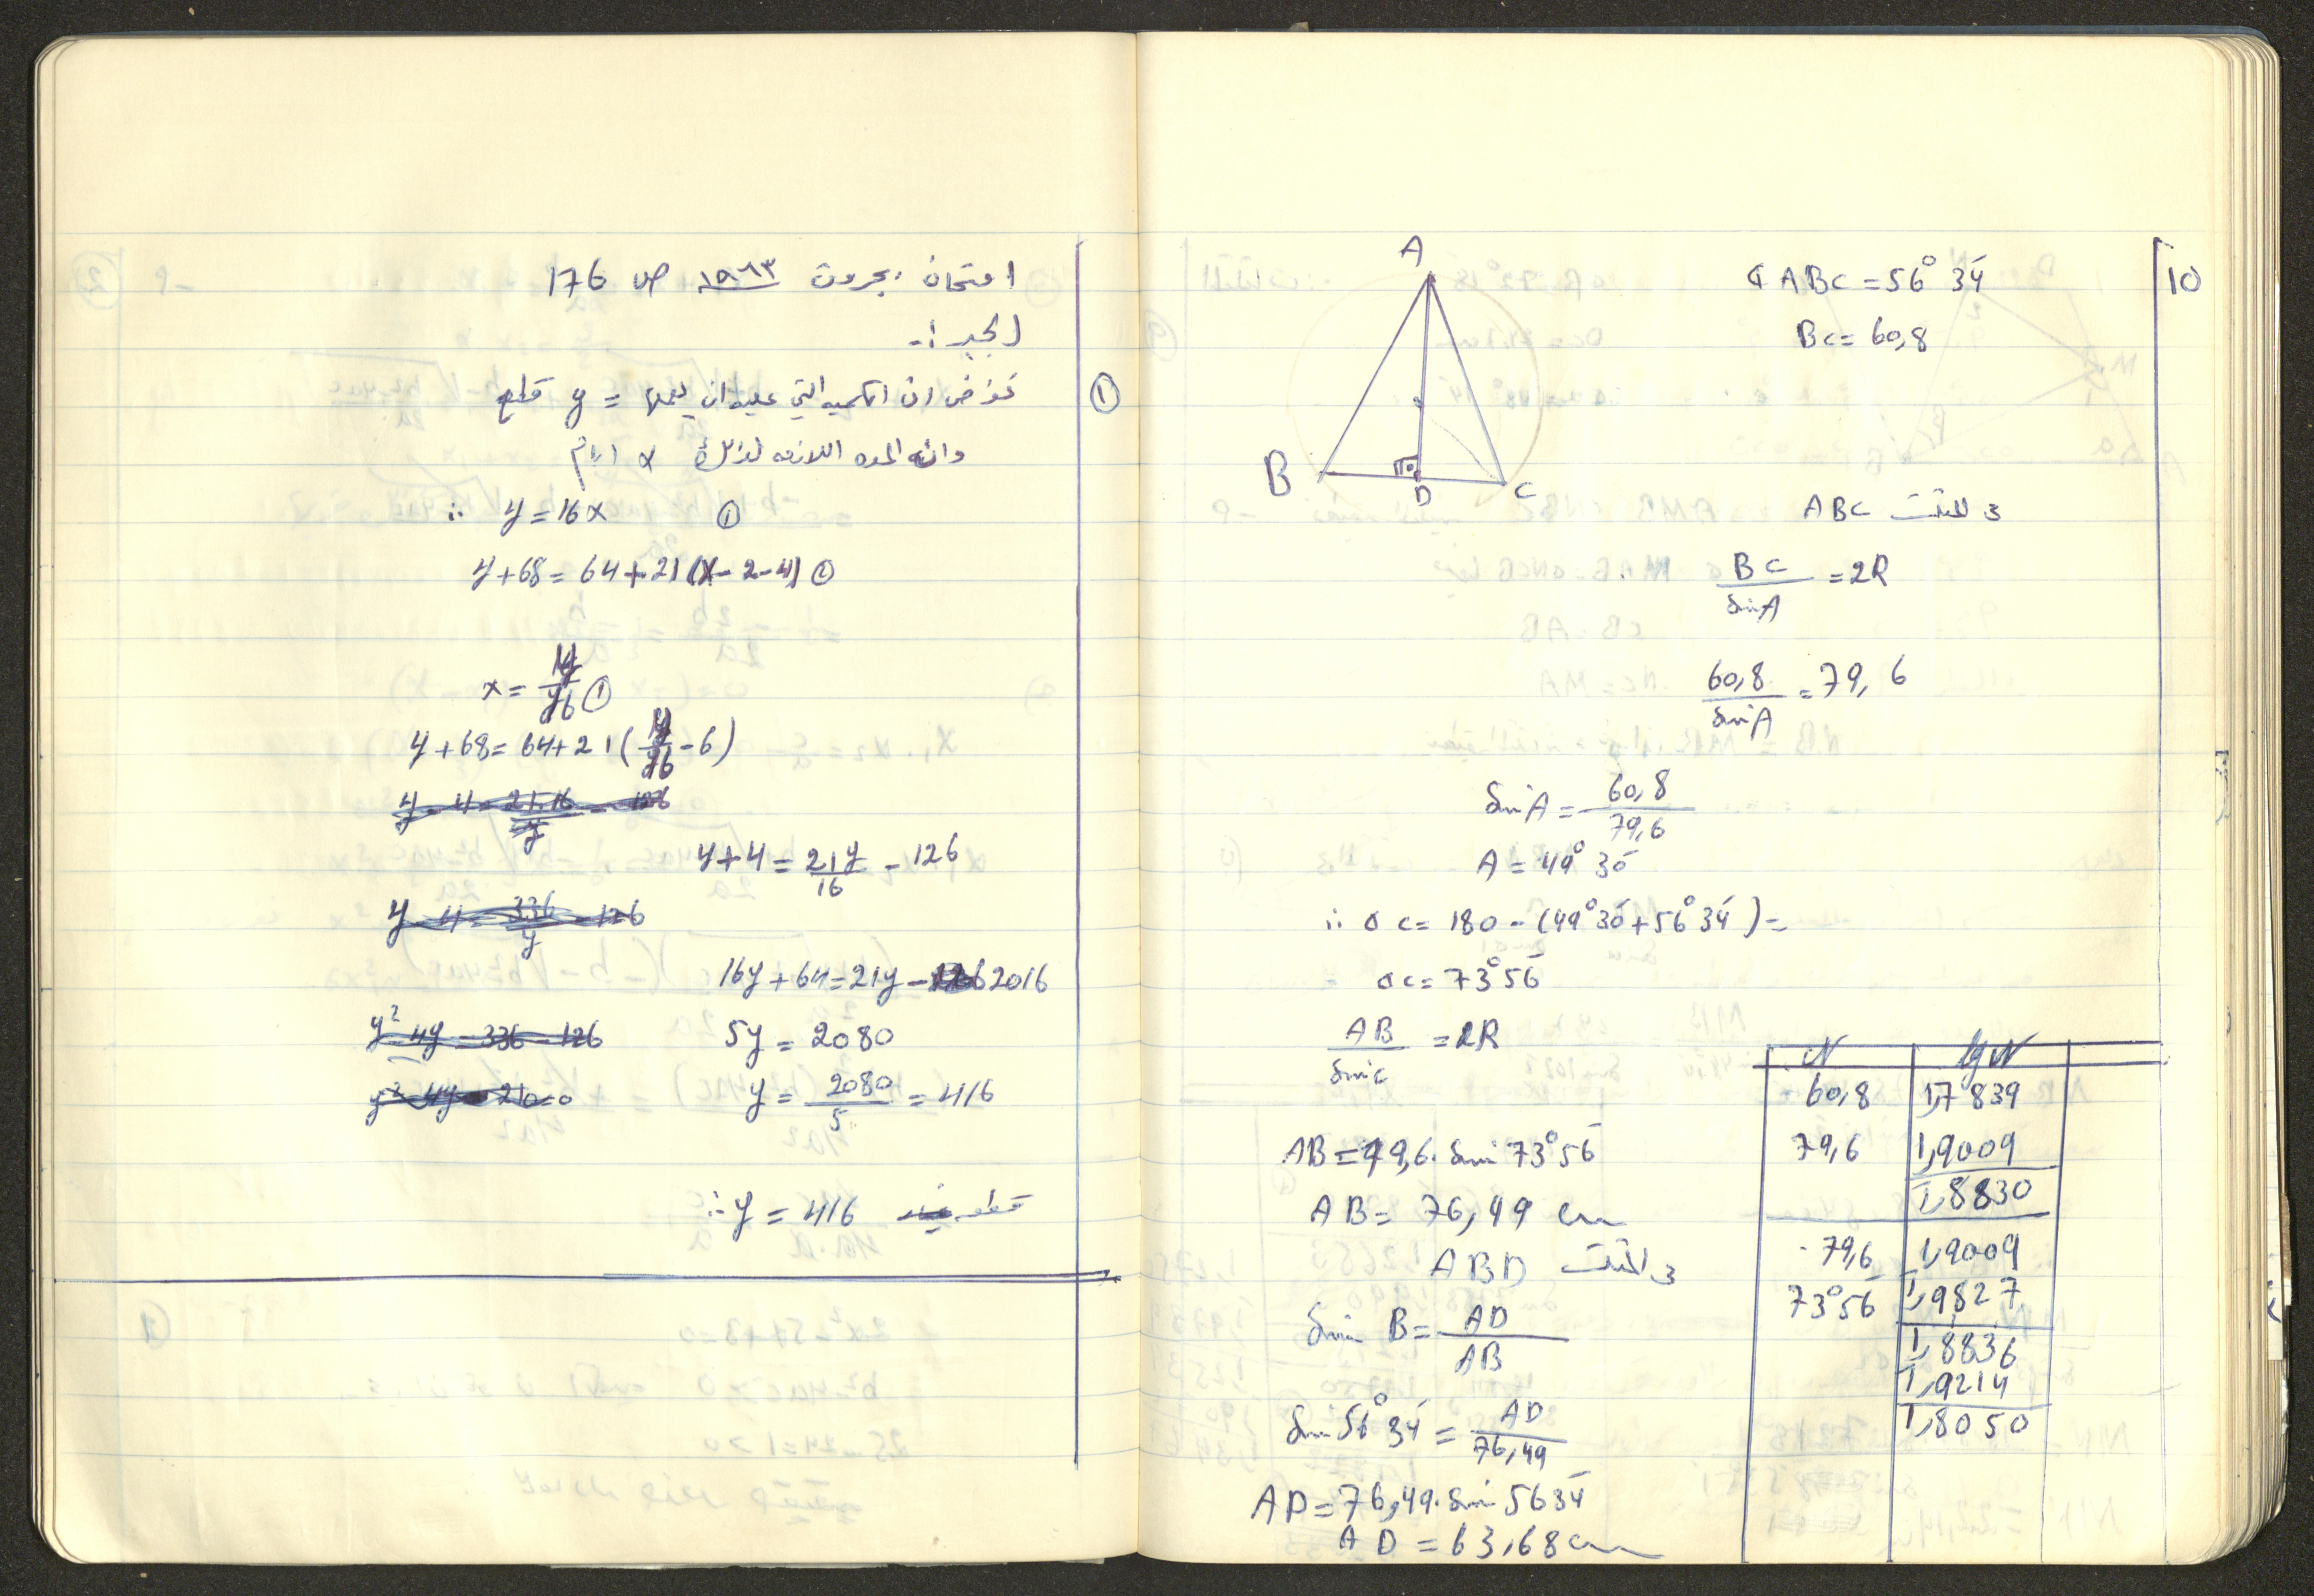 امتحان بجروت ١٩٦٣ ص 176
الجبر :-
①
نفرض ان الكميه التي عليه ان يعملها = y قطع
وانه المده اللازمه لذلك x ايام
∴ y = 16x ①
y+68 = 64+21(x-2-4) ②
x = y/16 ①
y+68 = 64+21(y/16 - 6)
y - 4 = 21.16/y - 126
y+4 = 21y/16 - 126
y - 4 = 336/y - 126
16y+64 = 21y - 2016
y² - 4y = 336 - 126
5y = 2080
y² - 4y - 210 = 0
y = 2080/5 = 416
∴ y = 416 قطعه
10
∢ ABC = 56° 34'
BC = 60,8
A
B
D
C
في المثلث ABC
BC/sin A = 2R
60,8/sin A = 79,6
sin A = 60,8/79,6
A = 49° 30'
∴ ∢ C = 180 - (49° 30' + 56° 34') =
= ∢ C = 73° 56'
AB/sin C = 2R
AB = 79,6 · sin 73° 56'
AB = 76,49 cm
في المثلث ABD
sin B = AD/AB
sin 56° 34' = AD/76,49
AD = 76,49 · sin 56 34'
AD = 63,68 cm
N lg N
60,8 1,7839
79,6 1,9009
1̄,8830
79,6 1,9009
73° 56' 1̄,9827
1,8836
1̄,9214
1,8050